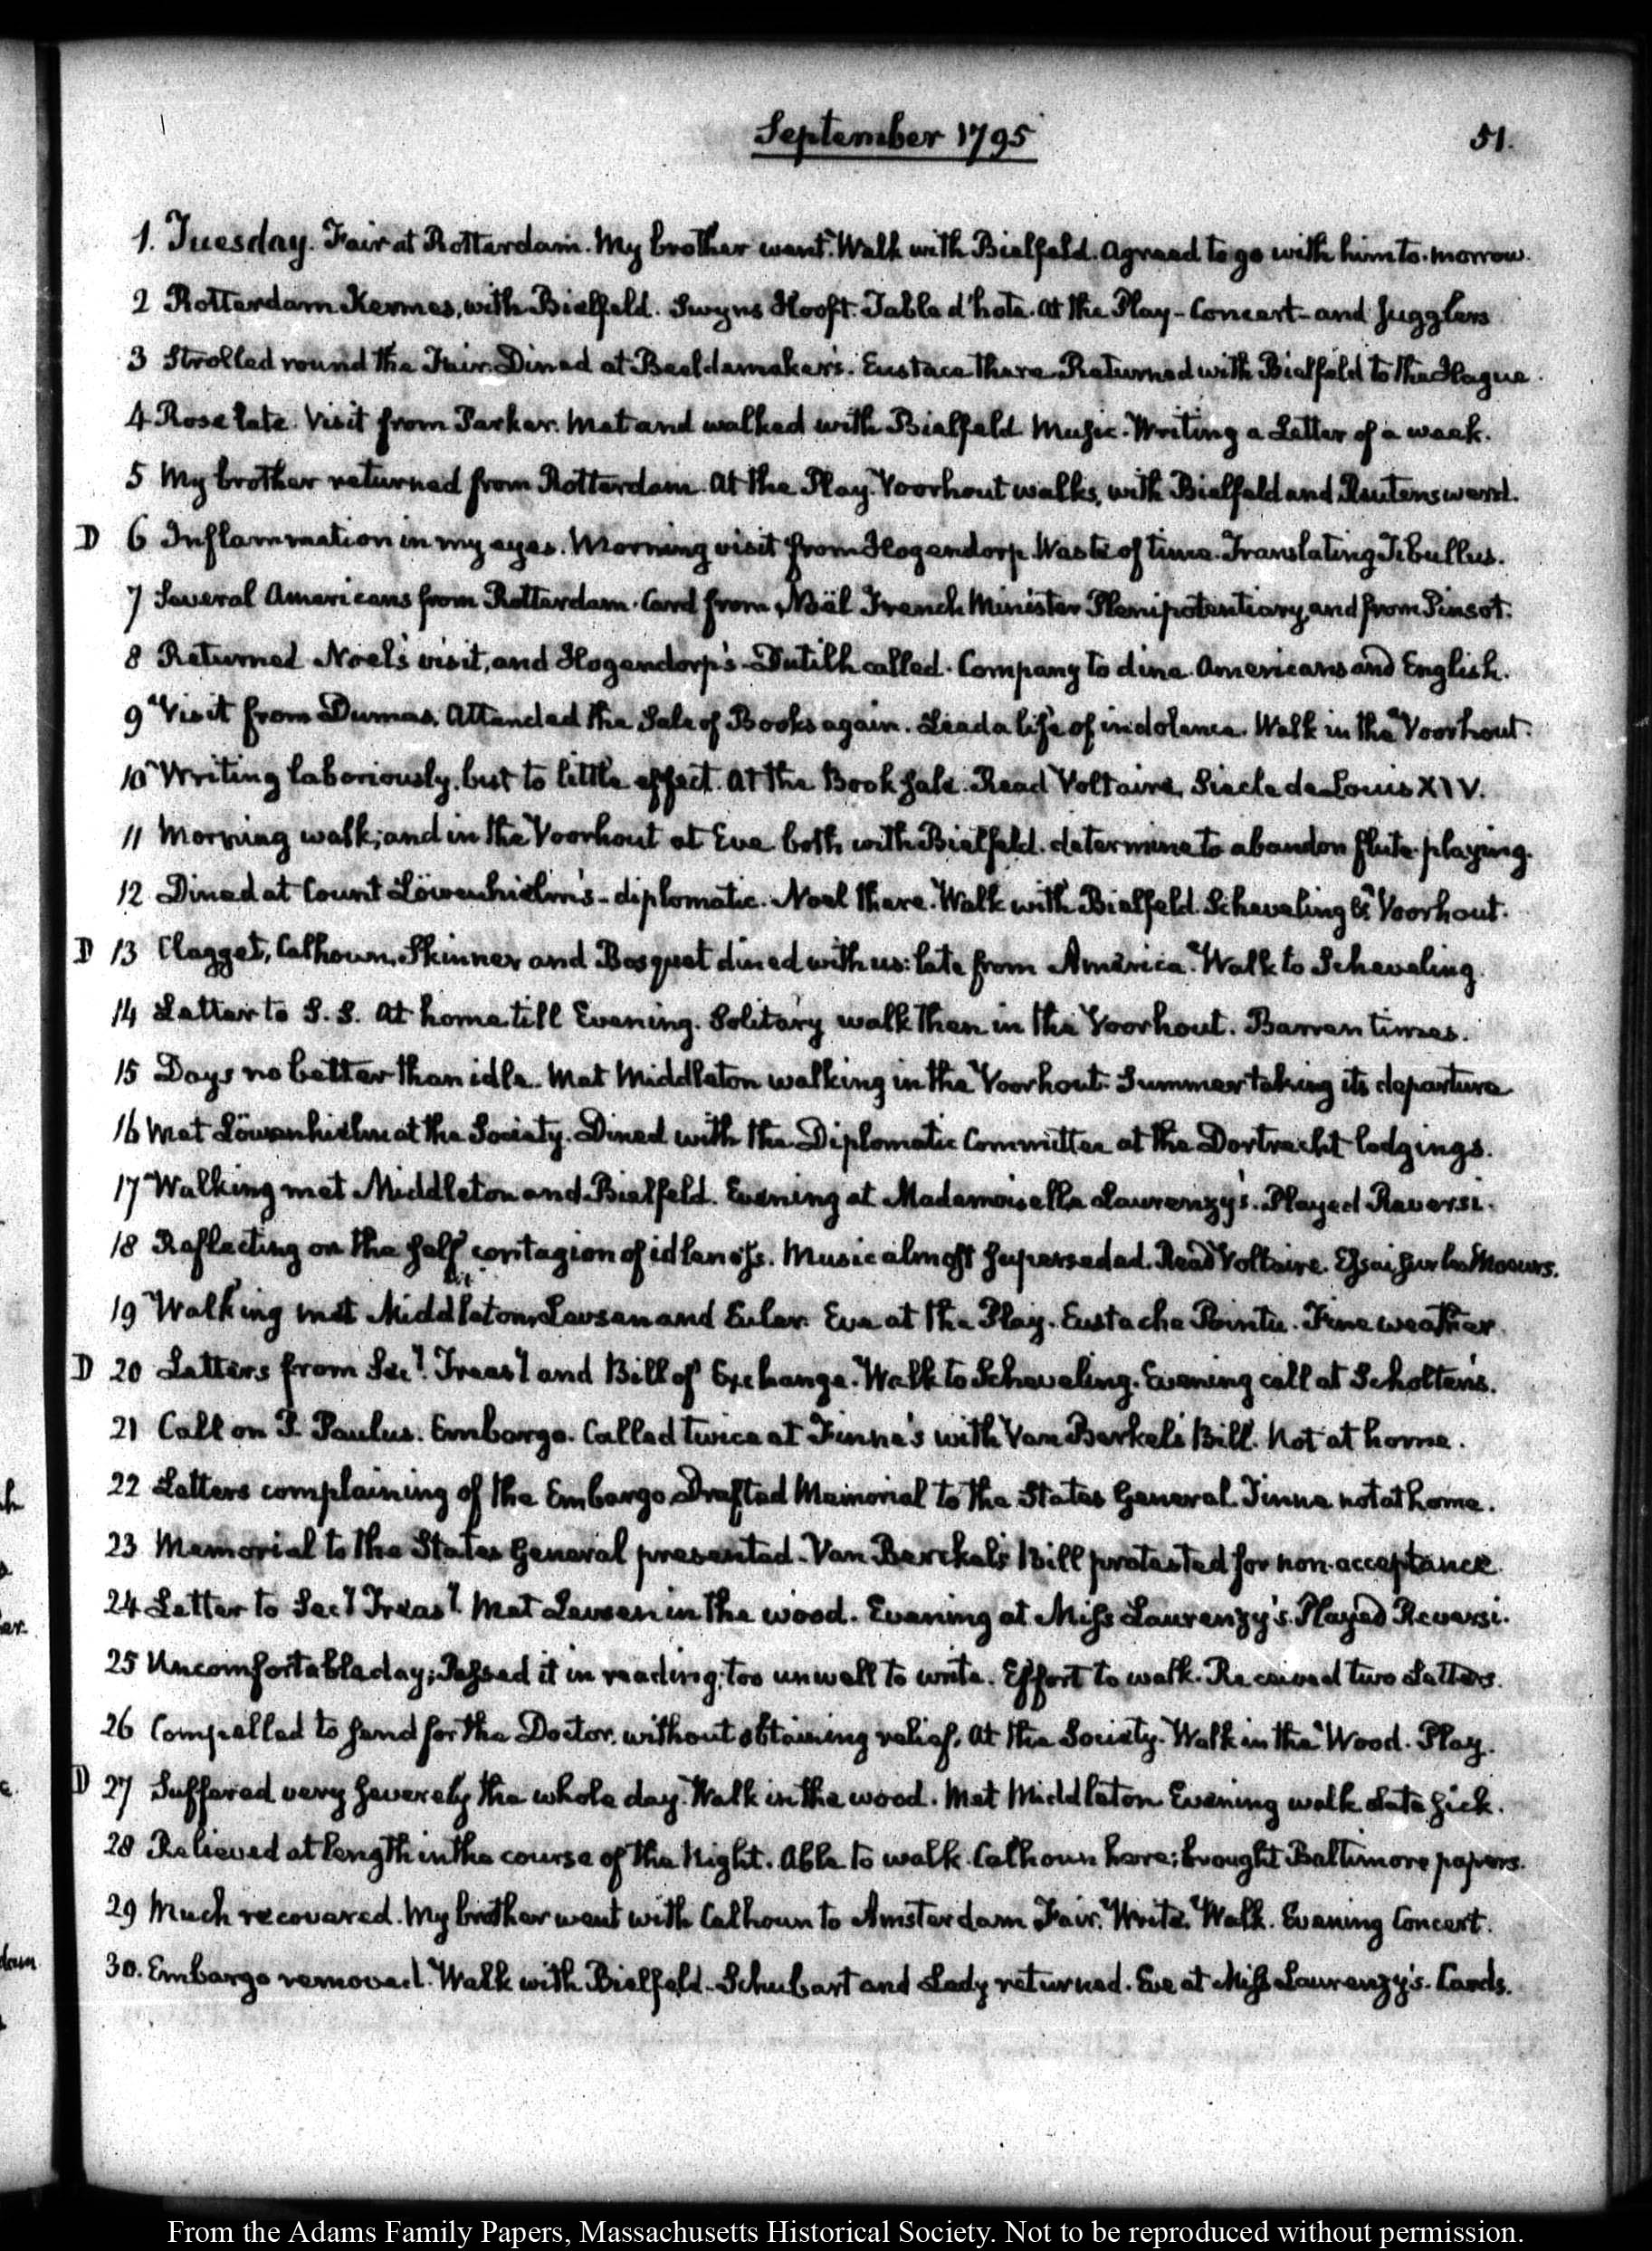 September 1795
51.
1. Tuesday. Fair at Rotterdam. My brother went. Walk with Bielfeld. Agreed to go with him to-morrow.
2 Rotterdam Kermes, with Bielfeld. Swyns Hooft. Table d'hote. At the Play - Concert - and Jugglers
3 Strolled round the Fair. Dined at Beeldemaker's. Eustace there. Returned with Bielfeld to the Hague.
4 Rose late. Visit from Parker. Met and walked with Bielfeld. Music. Writing a Letter of a week.
5 My brother returned from Rotterdam. At the Play. Voorhout walks, with Bielfeld and Reutenswerd.
D 6 Inflammation in my eyes. Morning visit from Hogendorp. Waste of time. Translating Tibullus.
7 Several Americans from Rotterdam. Card from Noël French Minister Plenipotentiary, and from Pinsot.
8 Returned Noel's visit, and Hogendorp's. Dutilh called. Company to dine. Americans and English.
9 Visit from Dumas. Attended the Sale of Books again. Lead a life of indolence. Walk in the Voorhout.
10 Writing laboriously, but to little effect. At the Book sale. Read Voltaire, Siecle de Louis XIV.
11 Morning walk; and in the Voorhout at Eve both with Bielfeld. determine to abandon flute playing.
12 Dined at Count Löwenhielm's - diplomatic. Noel there. Walk with Bielfeld. Scheveling & Voorhout.
D 13 Clagget, Calhoun, Skinner and Bosquet dined with us: late from America. Walk to Scheveling.
14 Letter to S. S. At home till Evening. Solitary walk then in the Voorhout. Barren times.
15 Days no better than idle. Met Middleton walking in the Voorhout. Summer taking its departure
16 Met Löwenhielm at the Society. Dined with the Diplomatic Committee at the Dortrecht lodgings.
17 Walking met Middleton and Bielfeld. Evening at Mademoiselle Laurenzy's. Played Reversi.
18 Reflecting on the self contagion of idleness. Music almost superseded. Read Voltaire. Essai sur les Moeurs.
19 Walking met Middleton, Levsen and Euler. Eve at the Play. Eustache Pointu. Fine weather.
D 20 Letters from Secy. Treasy. and Bill of Exchange. Walk to Scheveling. Evening call at Scholten's.
21 Call on P. Paulus. Embargo. Called twice at Tinne's with Van Berkel's Bill. Not at home.
22 Letters complaining of the Embargo. Drafted Memorial to the States General. Tinne not at home.
23 Memorial to the States General presented. Van Berckel's Bill protested for non-acceptance.
24 Letter to Secy Treasy. Met Levsen in the wood. Evening at Miss Laurenzy's. Played Reversi.
25 Uncomfortable day; Passed it in reading; too unwell to write. Effort to walk. Received two Letters.
26 Compelled to send for the Doctor. without obtaining relief. At the Society. Walk in the Wood. Play.
D 27 Suffered very severely the whole day. Walk in the wood. Met Middleton. Evening walk. Late sick.
28 Relieved at length in the course of the Night. Able to walk. Calhoun here; brought Baltimore papers.
29 Much recovered. My brother went with Calhoun to Amsterdam Fair. Write. Walk. Evening Concert.
30. Embargo removed. Walk with Bielfeld. Schubart and Lady returned. Eve at Miss Laurenzy's. Cards.
From the Adams Family Papers, Massachusetts Historical Society. Not to be reproduced without permission.